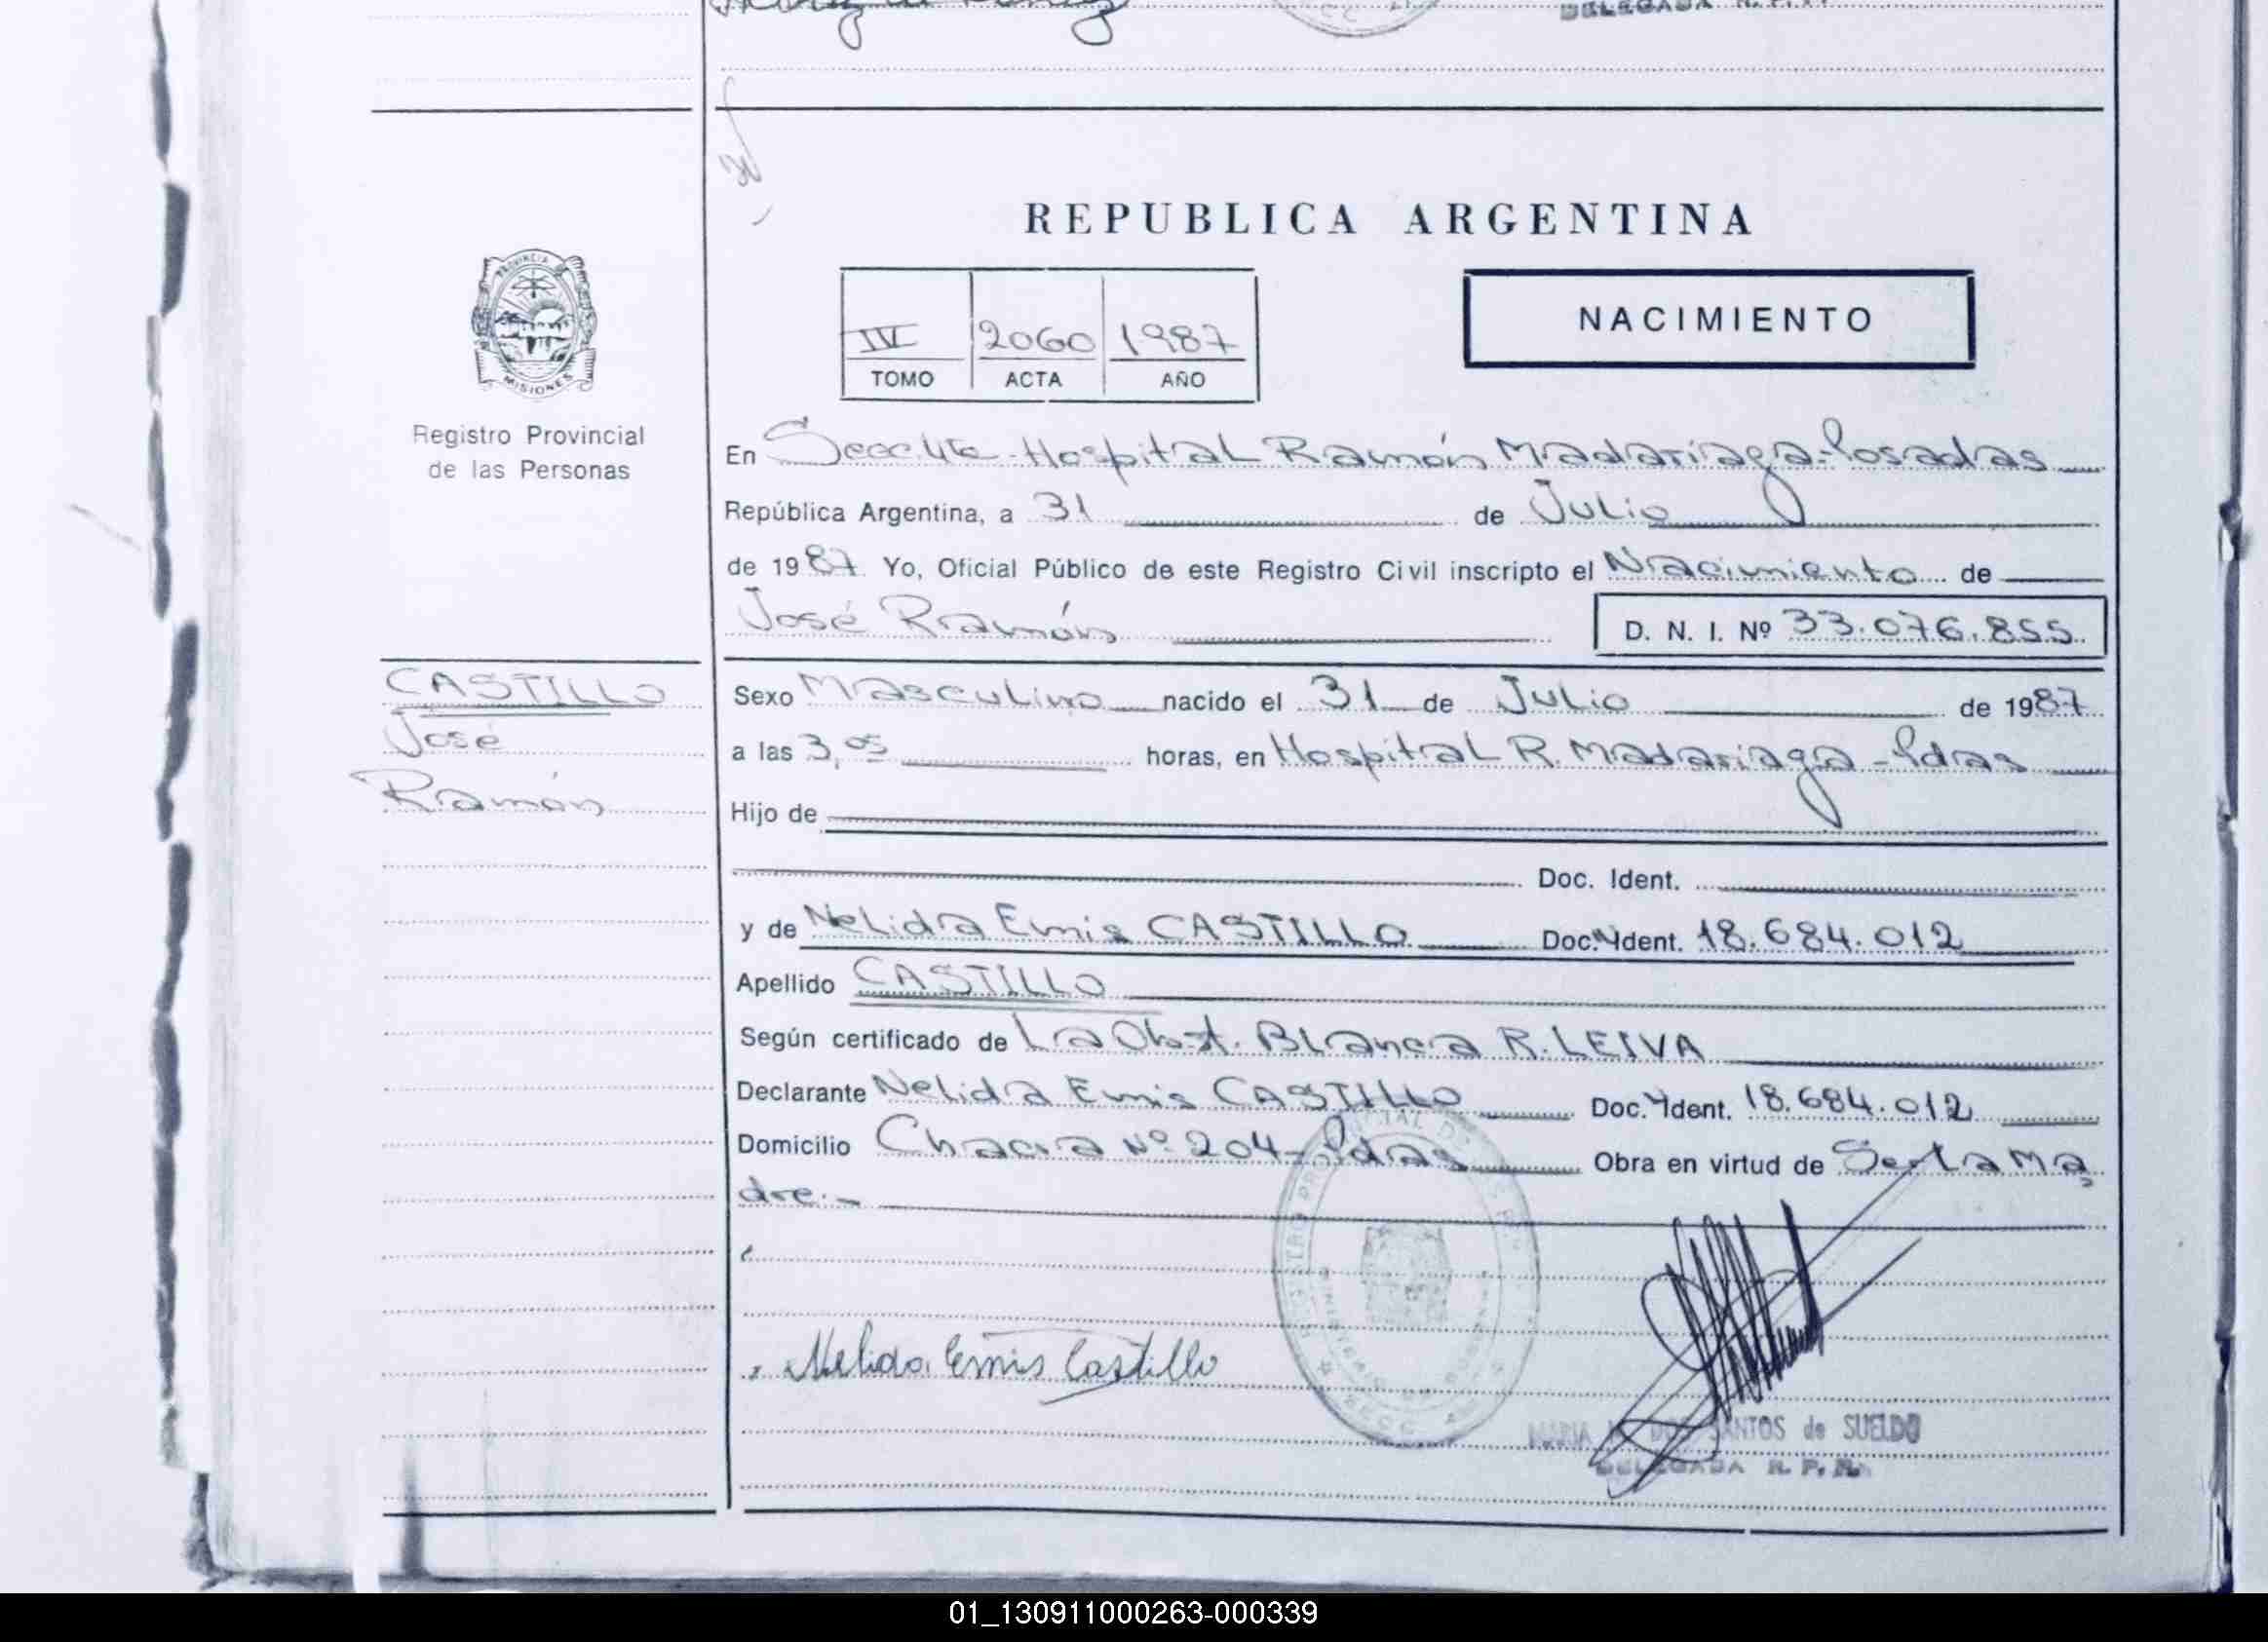 DELEGADA R.P.P.
REPUBLICA ARGENTINA
PROVINCIA
MISIONES
Registro Provincial
de las Personas
IV 2060 1987
TOMO ACTA AÑO
NACIMIENTO
En Hospital Ramón Madariaga-Posadas
República Argentina, a 31 de Julio
de 1987 Yo, Oficial Público de este Registro Civil inscripto el Nacimiento de
José Ramón D. N. I. Nº 33.076.855
CASTILLO
José
Ramón
Sexo Masculino nacido el 31 de Julio de 1987
a las 3,05 horas, en Hospital R. Madariaga - Pdas
Hijo de
Doc. Ident.
y de Nelida Emis CASTILLO Doc. Ident. 18.684.012
Apellido CASTILLO
Según certificado de La Obst. Blanca R. LEIVA
Declarante Nelida Emis CASTILLO Doc. Ident. 18.684.012
Domicilio Chacra Nº 204-Pdas Obra en virtud de Ser la Ma
dre.-
Nelida Emis Castillo
MARIA DOS SANTOS de SUELDO
DELEGADA R. P. P.
01_130911000263-000339